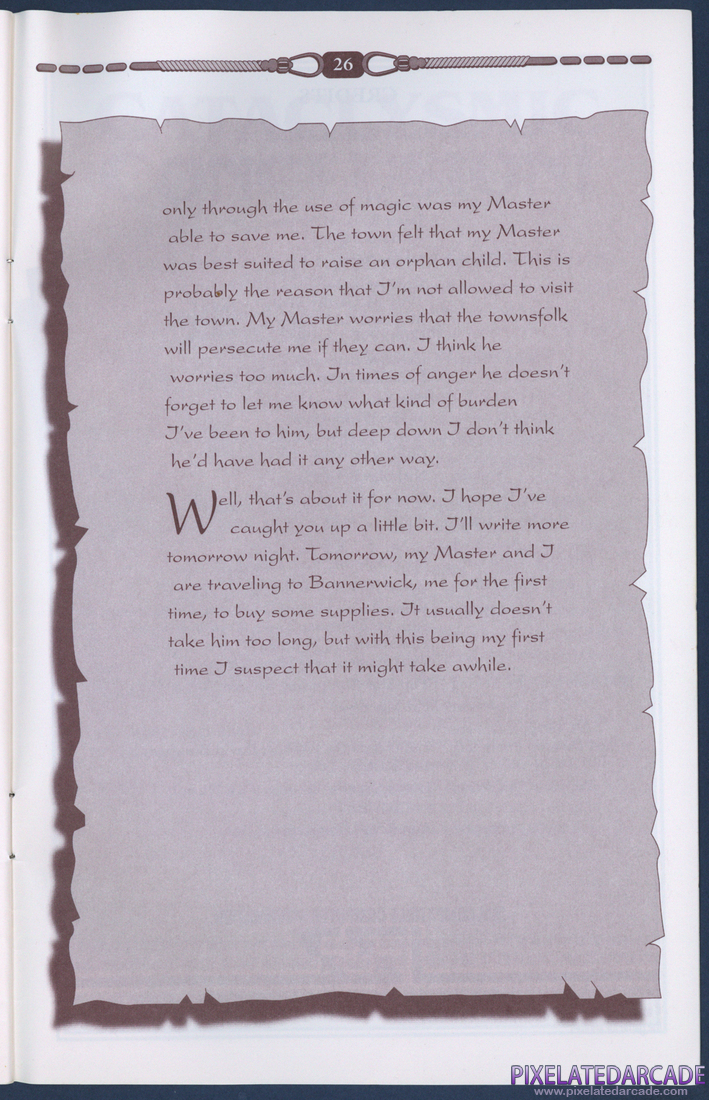 26
only through the use of magic was my Master
able to save me. The town felt that my Master
was best suited to raise an orphan child. This is
probably the reason that I'm not allowed to visit
the town. My Master worries that the townsfolk
will persecute me if they can. I think he
worries too much. In times of anger he doesn't
forget to let me know what kind of burden
I've been to him, but deep down I don't think
he'd have had it any other way.
Well, that's about it for now. I hope I've
caught you up a little bit. I'll write more
tomorrow night. Tomorrow, my Master and I
are traveling to Bannerwick, me for the first
time, to buy some supplies. It usually doesn't
take him too long, but with this being my first
time I suspect that it might take awhile.
PIXELATEDARCADE
www.pixelatedarcade.com